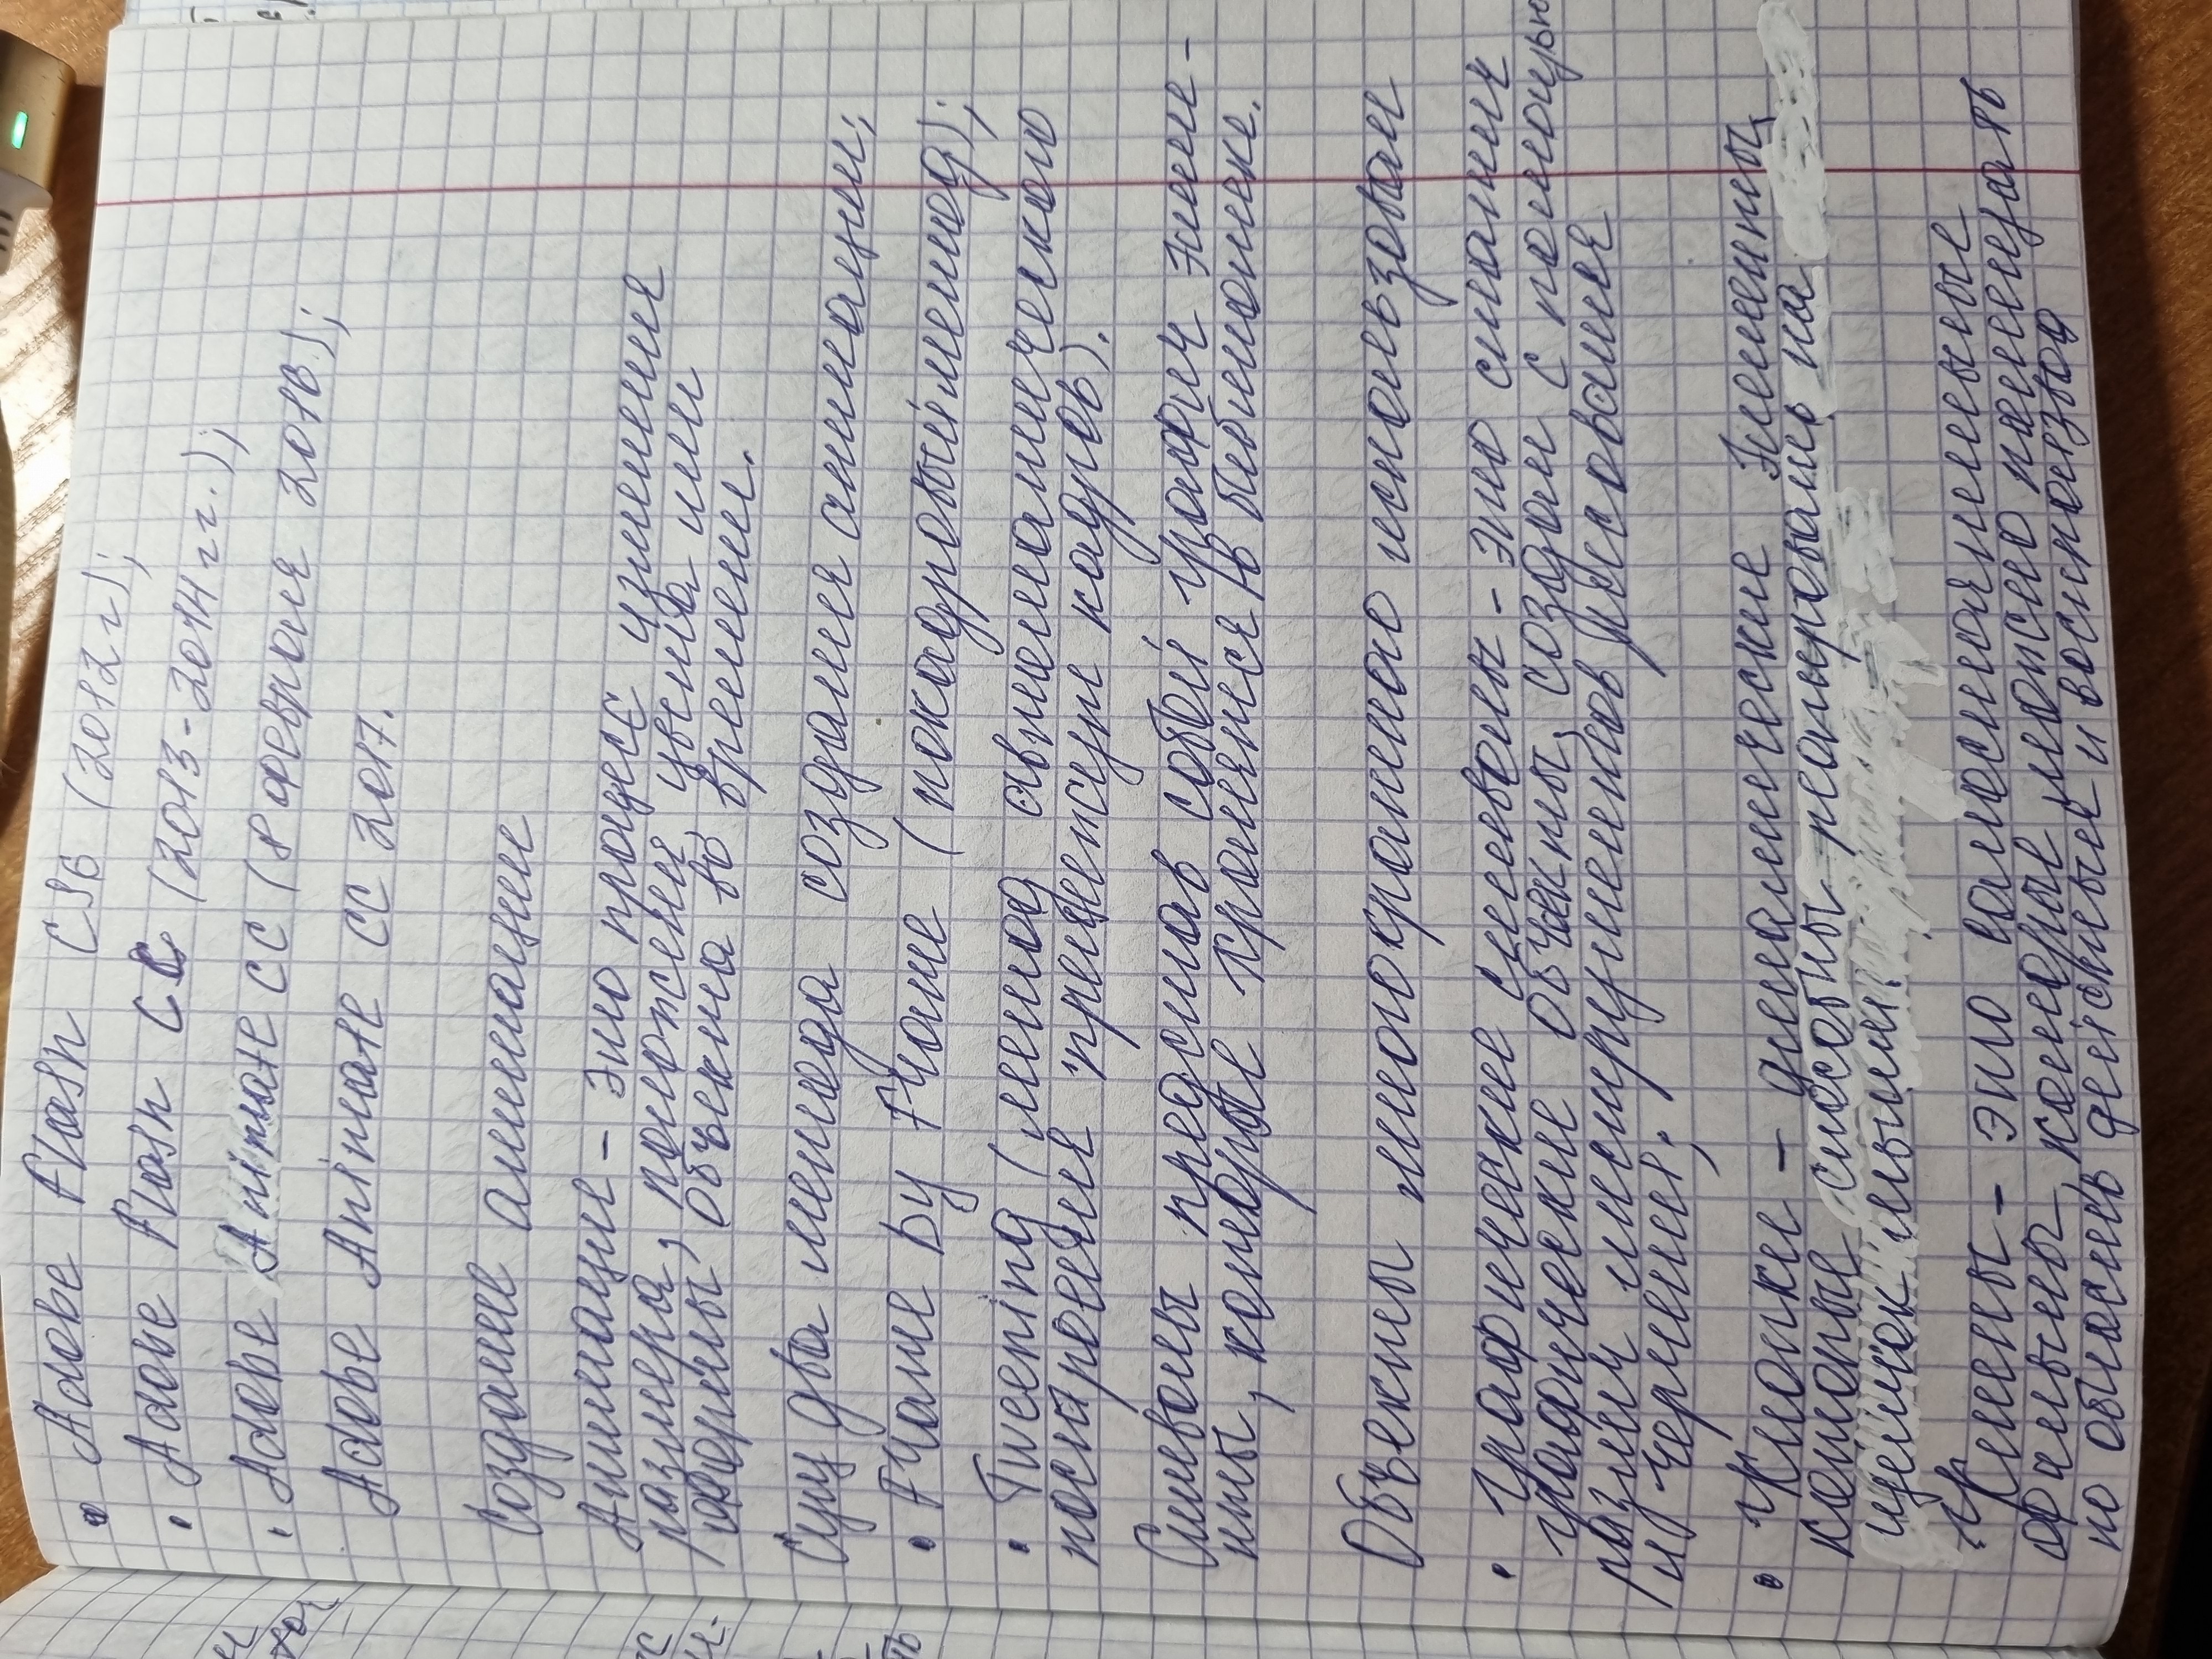 • Adobe Flash CS6 (2012 г);
• Adobe Flash CC (2013-2014 гг.);
• Adobe Animate CC (8 февраля 2016);
Adobe Animate CC 2017.
Создание анимации
Анимация - это процесс изменения
размера, положени, цвета или
формы объекта во времени.
Сущ два метода создания анимации:
• Frame by Frame (покадровый метод);
• Tweening (метод автоматического
построения промежут кадров).
Символы представ собой графич элеме-
нты, которые хранятся в библиотеке.
Объекты многократного использован
• графические символы - это статич
графические объекты, создан с помощью
различ инструментов рисования
и черчения;
• Кнопки - динамические элементы,
которые способны реагировать на
щелчок мыши.
Клипы - это самостоятельные
фильмы, которые можно помещать
на область действия и воспроизвод